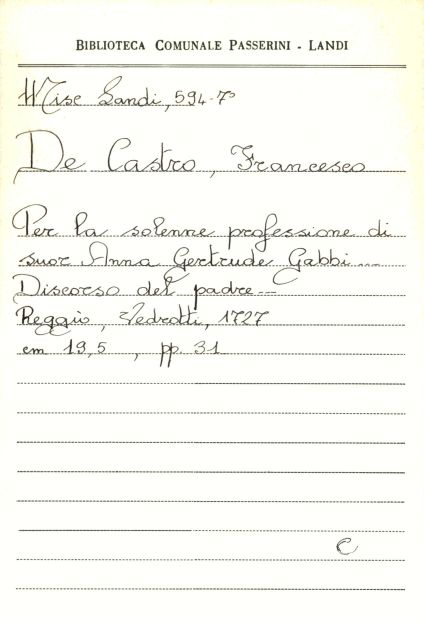 BIBLIOTECA COMUNALE PASSERINI - LANDI
Misc Landi, 594-7º
De Castro, Francesco
Per la solenne professione di
suor Anna Gertrude Gabbi...
Discorso del padre...
Reggio, Vedrotti, 1727
cm 19,5 , pp. 31
C